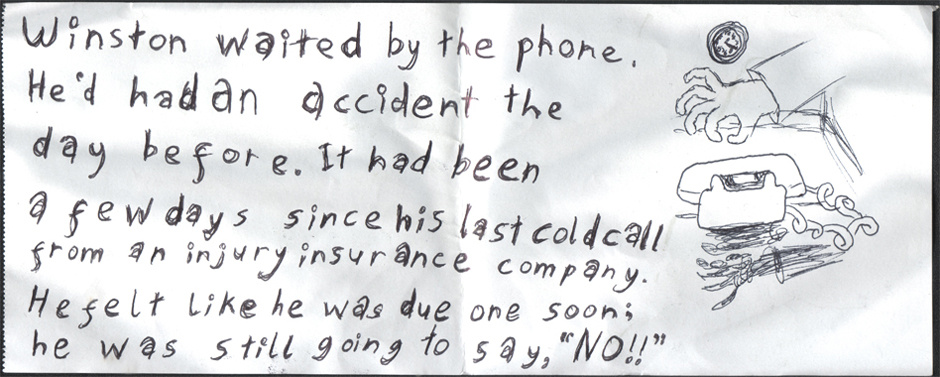 Winston waited by the phone.
He'd had an accident the
day before. It had been
a few days since his last cold call
from an injury insurance company.
He felt like he was due one soon;
he was still going to say, "NO!!"